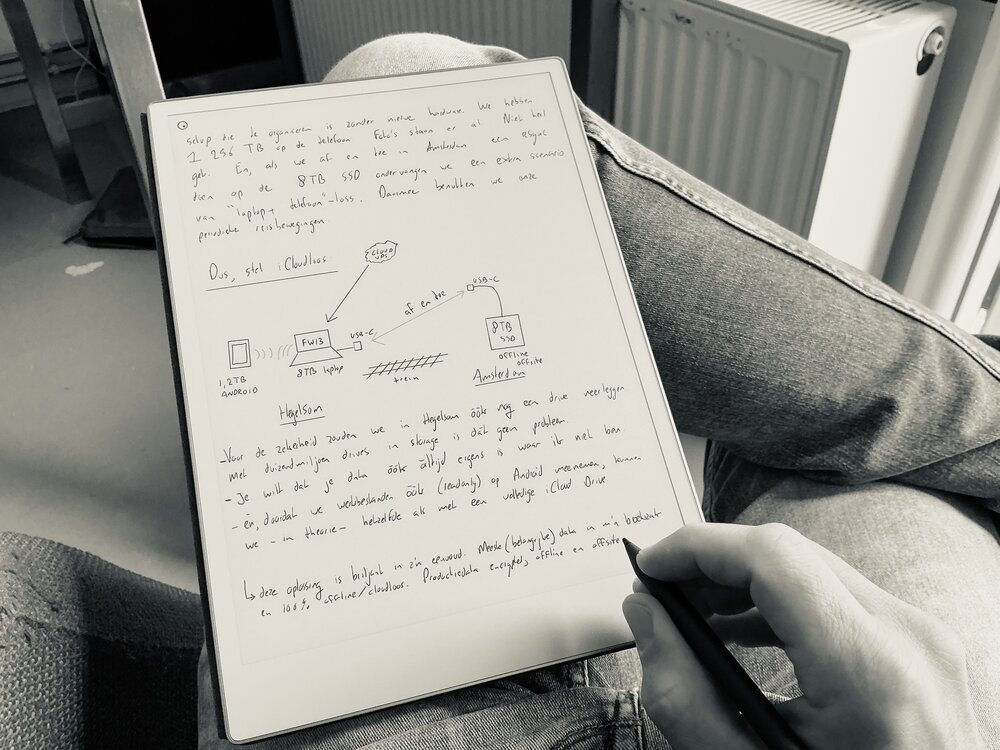 setup die te organiseren is zonder nieuwe hardware. We hebben
1 256 TB op de telefoon Foto's staan er al. Niet heel
gek. En, als we af en toe in Amsterdam een async
doen op de 8TB SSD ondervangen we een extra scenario
van "laptop + telefoon"-loss. Daarmee benutten we onze
periodieke reisbewegingen
Dus, stel iCloudloos
CLOUD
VPS
USB-C
af en toe
USB-C
FW13
8TB
SSD
8TB laptop
offline
offsite
1,2TB
ANDROID
trein
Amsterdam
Hegelsom
- Voor de zekerheid zouden we in Hegelsom óók nog een drive neerleggen
met duizendmiljoen drives in storage is dát geen probleem.
- Je wilt dat je data óók áltijd ergens is waar ik niet ben.
- én, doordat we werkbestanden óók (readonly) op Android meenemen, kunnen
we - in theorie - hetzelfde als met een volledige iCloud Drive
↳ deze oplossing is briljant in z'n eenvoud. Meeste (belangrijke) data in m'n broekzak
en 100% offline/cloudloos. Productiedata encrypted, offline en offsite